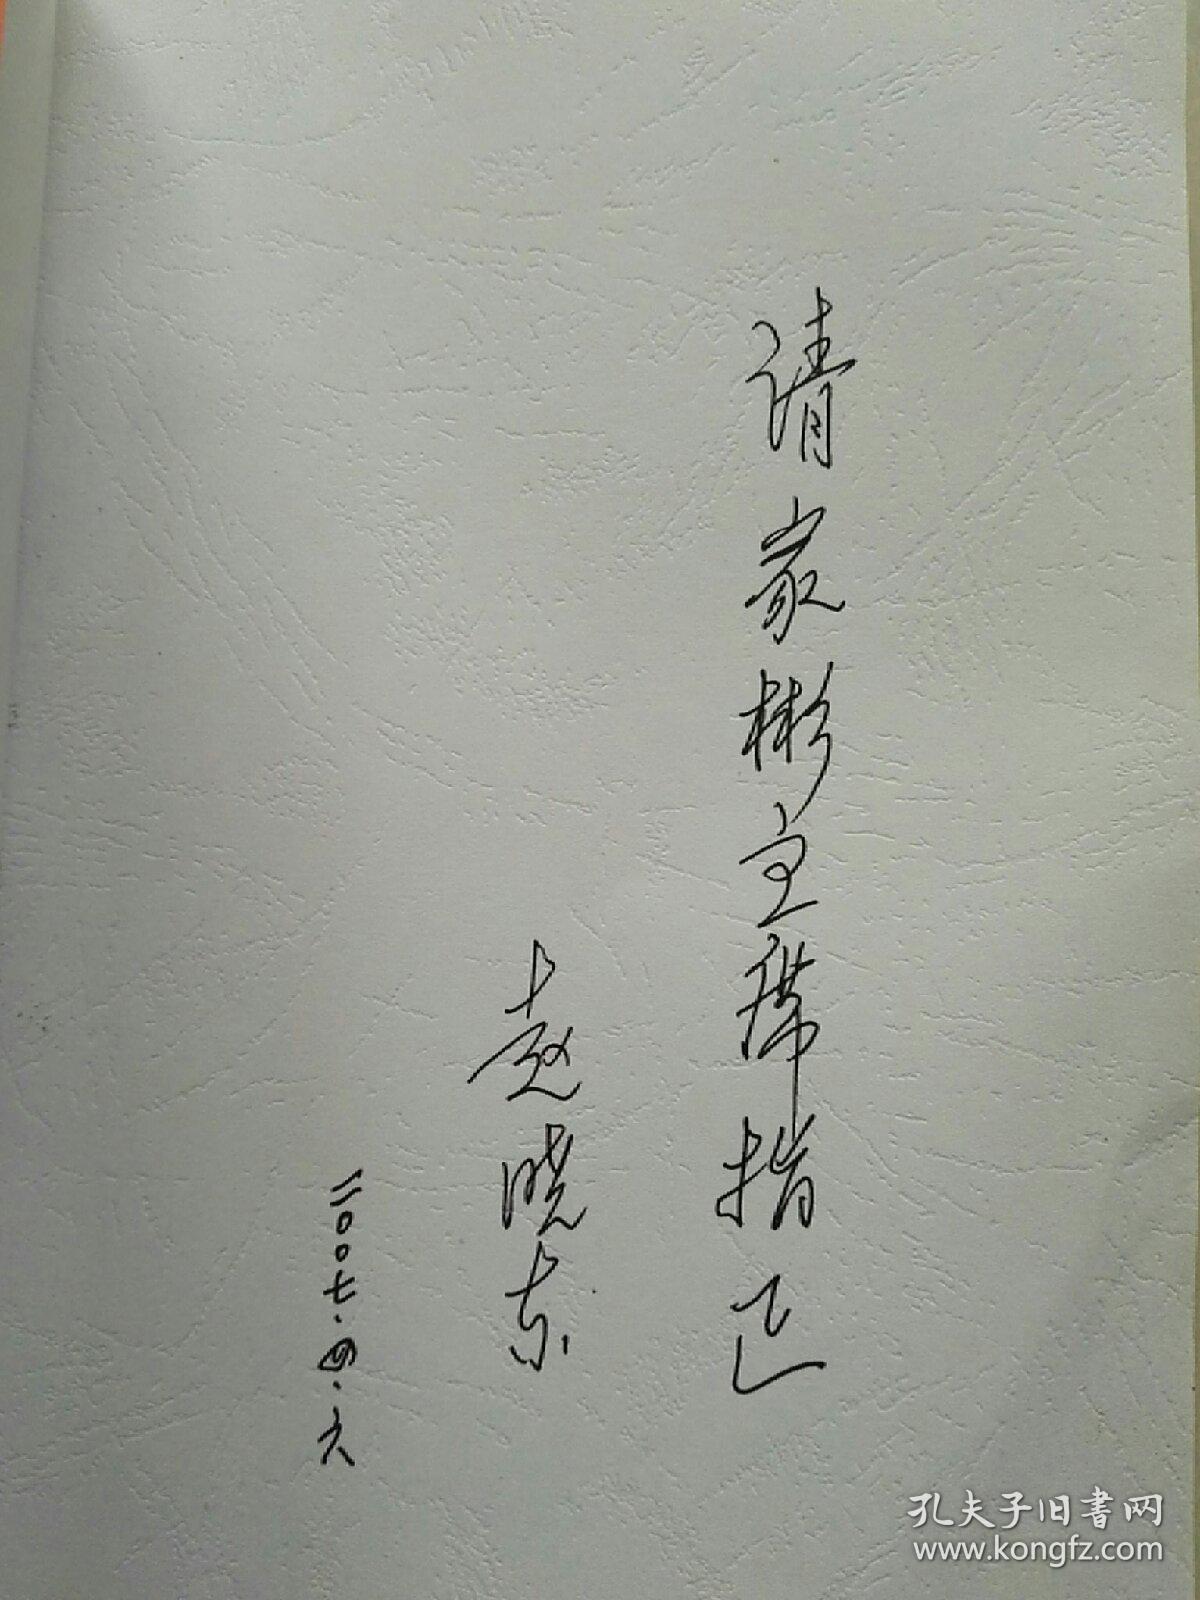 请家彬主席指正
赵晓东
二〇〇七.四.六
孔夫子旧書网
www.kongfz.com